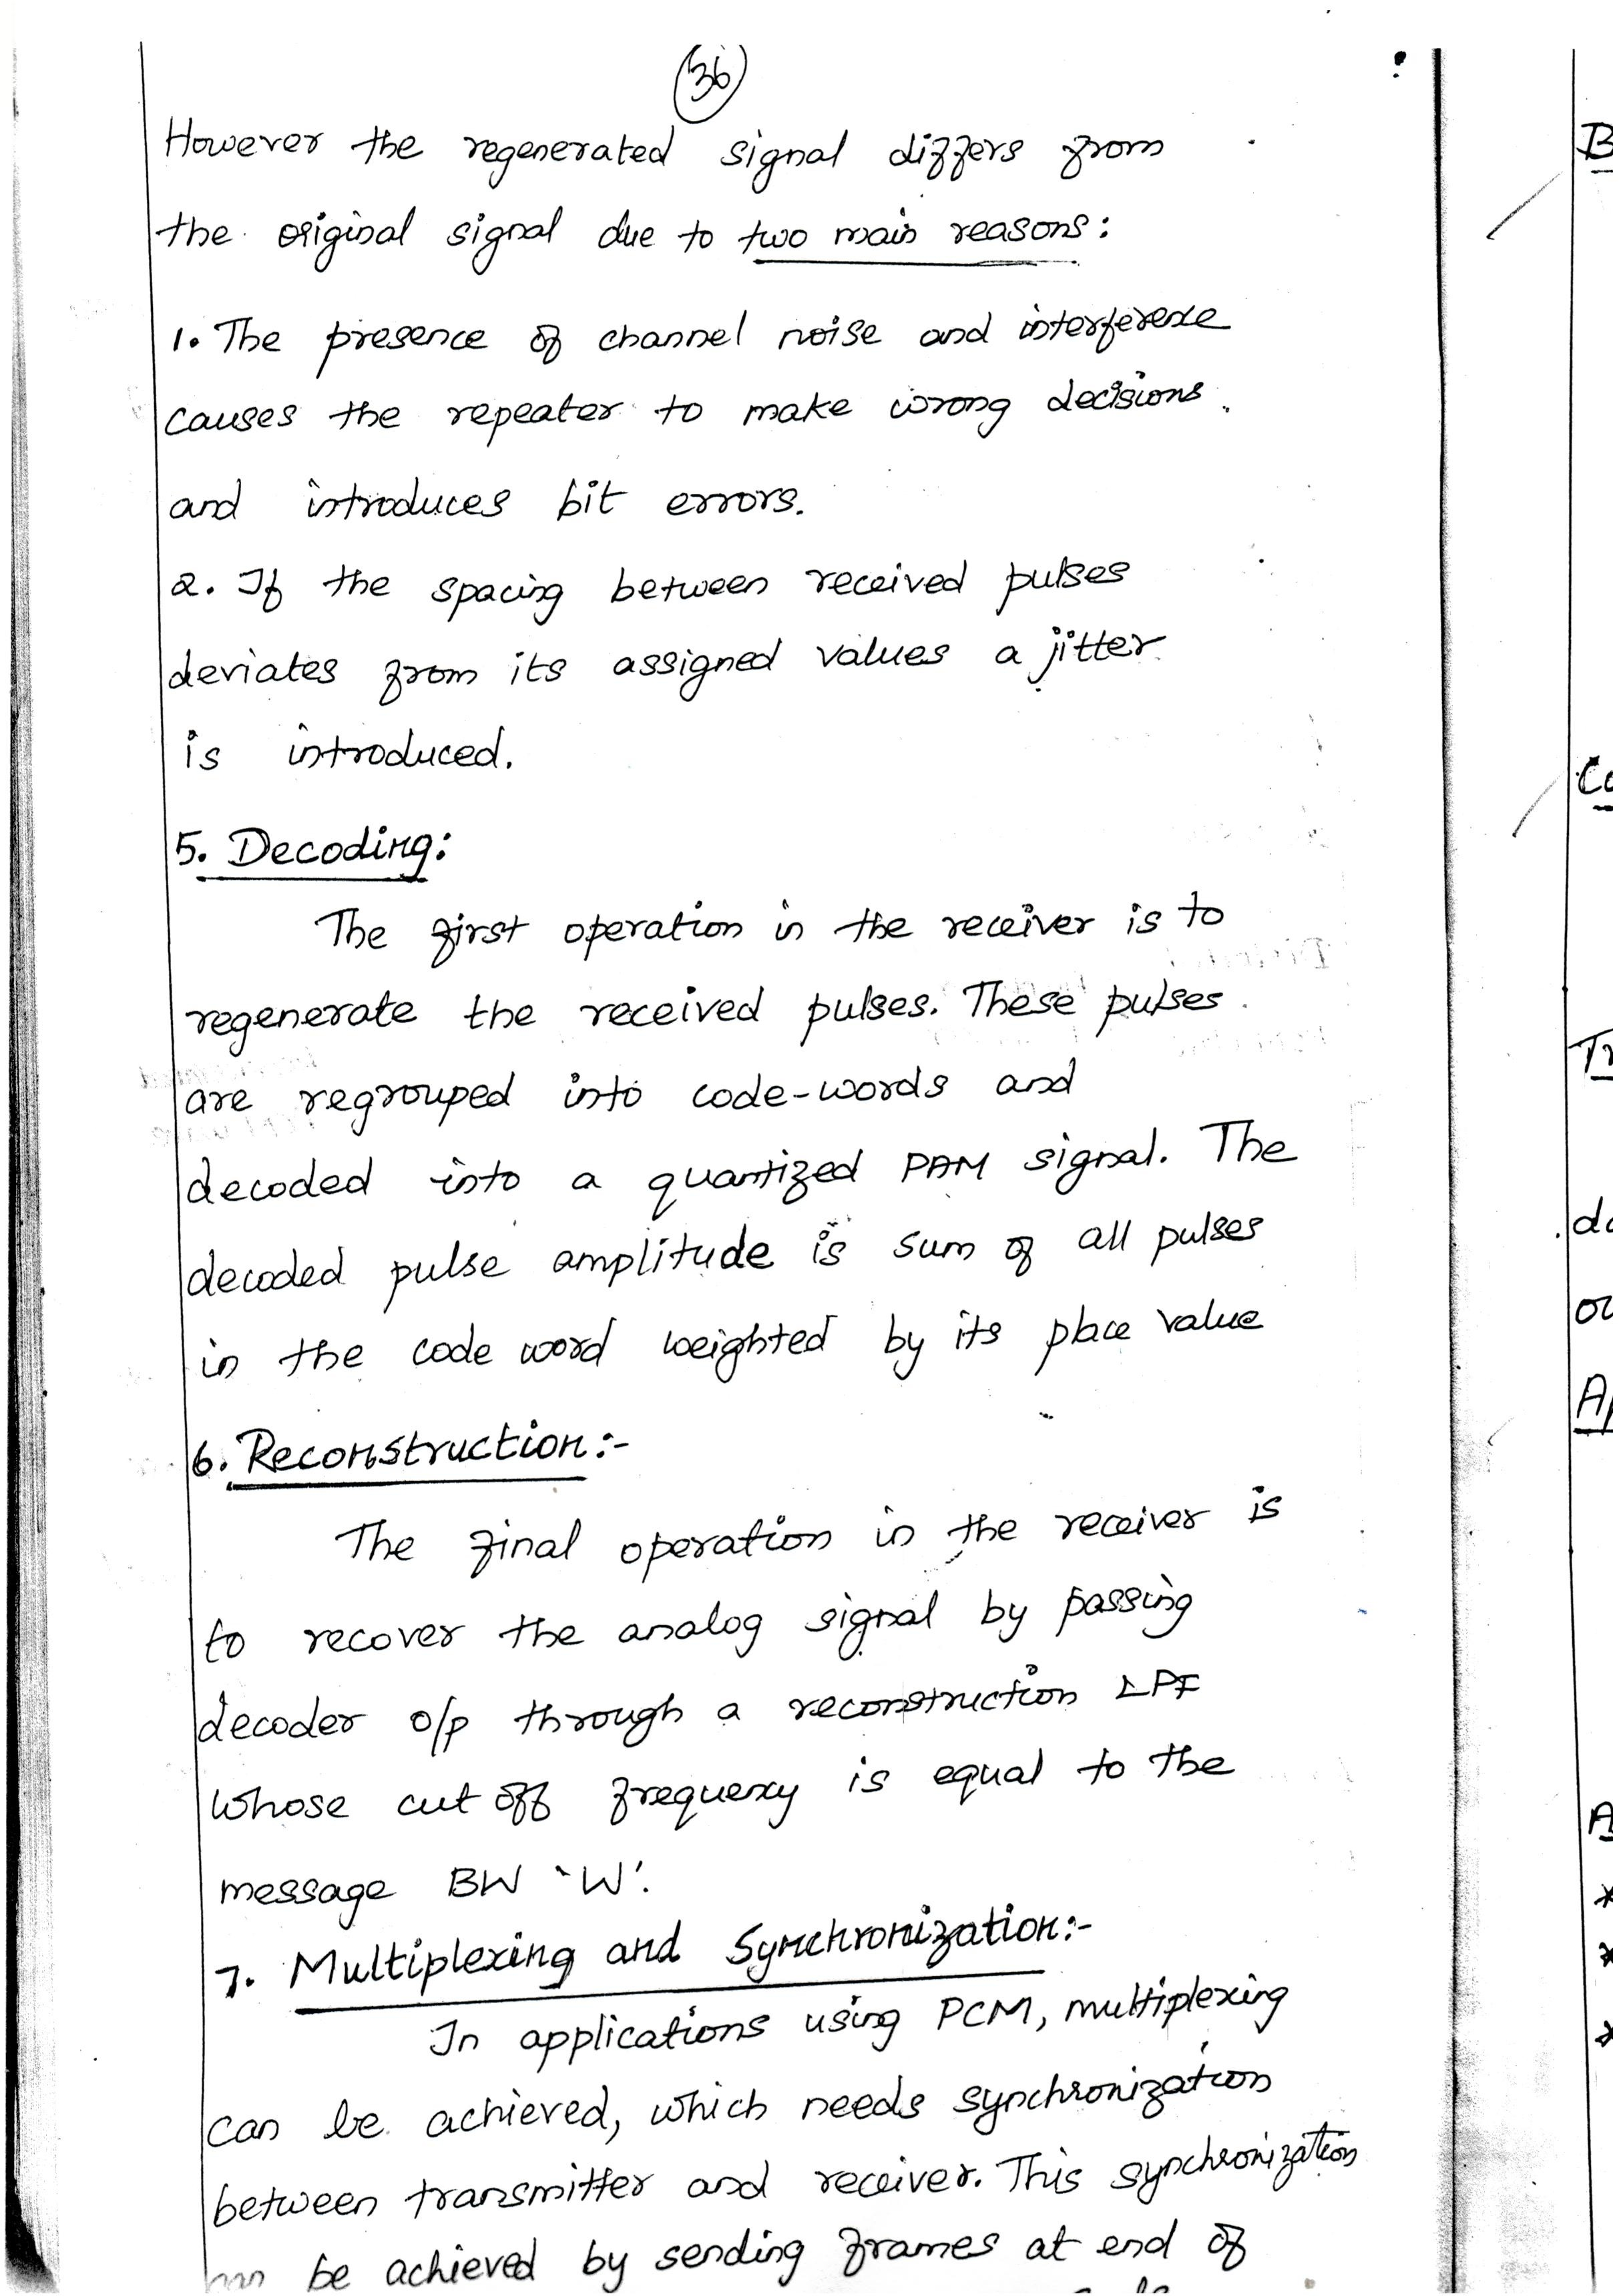 36
However the regenerated signal differs from
the original signal due to two main reasons:
1. The presence of channel noise and interference
causes the repeater to make wrong decisions.
and introduces bit errors.
2. If the spacing between received pulses
deviates from its assigned values a jitter
is introduced.
5. Decoding:
The first operation in the receiver is to
regenerate the received pulses. These pulses
are regrouped into code-words and
decoded into a quantized PAM signal. The
decoded pulse amplitude is sum of all pulses
in the code word weighted by its place value
6. Reconstruction:-
The final operation in the receiver is
to recover the analog signal by passing
decoder o/p through a reconstruction LPF
whose cut off frequency is equal to the
message BW 'W'.
7. Multiplexing and Synchronization:-
In applications using PCM, multiplexing
can be achieved, which needs synchronization
between transmitter and receiver. This synchronization
can be achieved by sending frames at end of